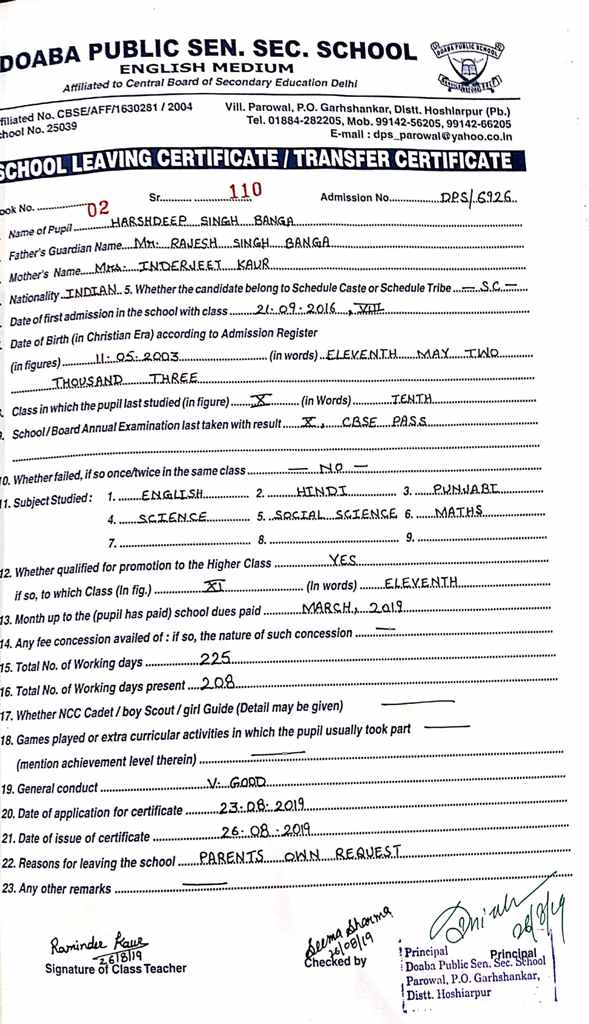 DOABA PUBLIC SEN. SEC. SCHOOL
ENGLISH MEDIUM
Affiliated to Central Board of Secondary Education Delhi
DOABA PUBLIC SCHOOL
filiated No. CBSE/AFF/1630281 / 2004 Vill. Parowal, P.O. Garhshankar, Distt. Hoshiarpur (Pb.)
hool No. 25039 Tel. 01884-282205, Mob. 99142-56205, 99142-66205
E-mail : dps_parowal@yahoo.co.in
SCHOOL LEAVING CERTIFICATE / TRANSFER CERTIFICATE
ook No. 02 Sr. 110 Admission No. DPS/6926
Name of Pupil HARSHDEEP SINGH BANGA
Father's Guardian Name Mr. RAJESH SINGH BANGA
Mother's Name Mrs. INDERJEET KAUR
Nationality INDIAN 5. Whether the candidate belong to Schedule Caste or Schedule Tribe — S.C —
Date of first admission in the school with class 21.09.2016, VIII
Date of Birth (in Christian Era) according to Admission Register
(in figures) 11.05.2003 (in words) ELEVENTH MAY TWO
THOUSAND THREE
Class in which the pupil last studied (in figure) X (in Words) TENTH
School / Board Annual Examination last taken with result X, CBSE PASS
0. Whether failed, if so once/twice in the same class — NO —
11. Subject Studied : 1. ENGLISH 2. HINDI 3. PUNJABI
4. SCIENCE 5. SOCIAL SCIENCE 6. MATHS
7. 8. 9.
12. Whether qualified for promotion to the Higher Class YES
if so, to which Class (In fig.) XI (In words) ELEVENTH
13. Month up to the (pupil has paid) school dues paid MARCH, 2019
14. Any fee concession availed of : if so, the nature of such concession —
15. Total No. of Working days 225
16. Total No. of Working days present 208
17. Whether NCC Cadet / boy Scout / girl Guide (Detail may be given) —
18. Games played or extra curricular activities in which the pupil usually took part —
(mention achievement level therein) —
19. General conduct V. GOOD
20. Date of application for certificate 23.08.2019
21. Date of issue of certificate 26.08.2019
22. Reasons for leaving the school PARENTS OWN REQUEST
23. Any other remarks —
Raminder Kaur
26/8/19
Signature of Class Teacher
Seema Sharma
26/08/19
Checked by
26/8/19
Principal
Principal
Doaba Public Sen. Sec. School
Parowal, P.O. Garhshankar,
Distt. Hoshiarpur